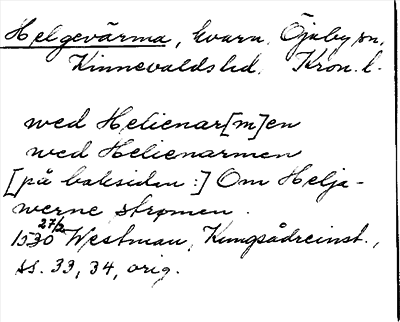 Helgevärma, kvarn, Öjaby sn,
Kinnevalds hd, Kron. l.
wed Helienar[m]en
wed Helienarmen
[på baksidan:] Om Helja-
werne strømen.
1530 27/2 Westman, Kungsådreinst.,
ss. 33, 34, orig.